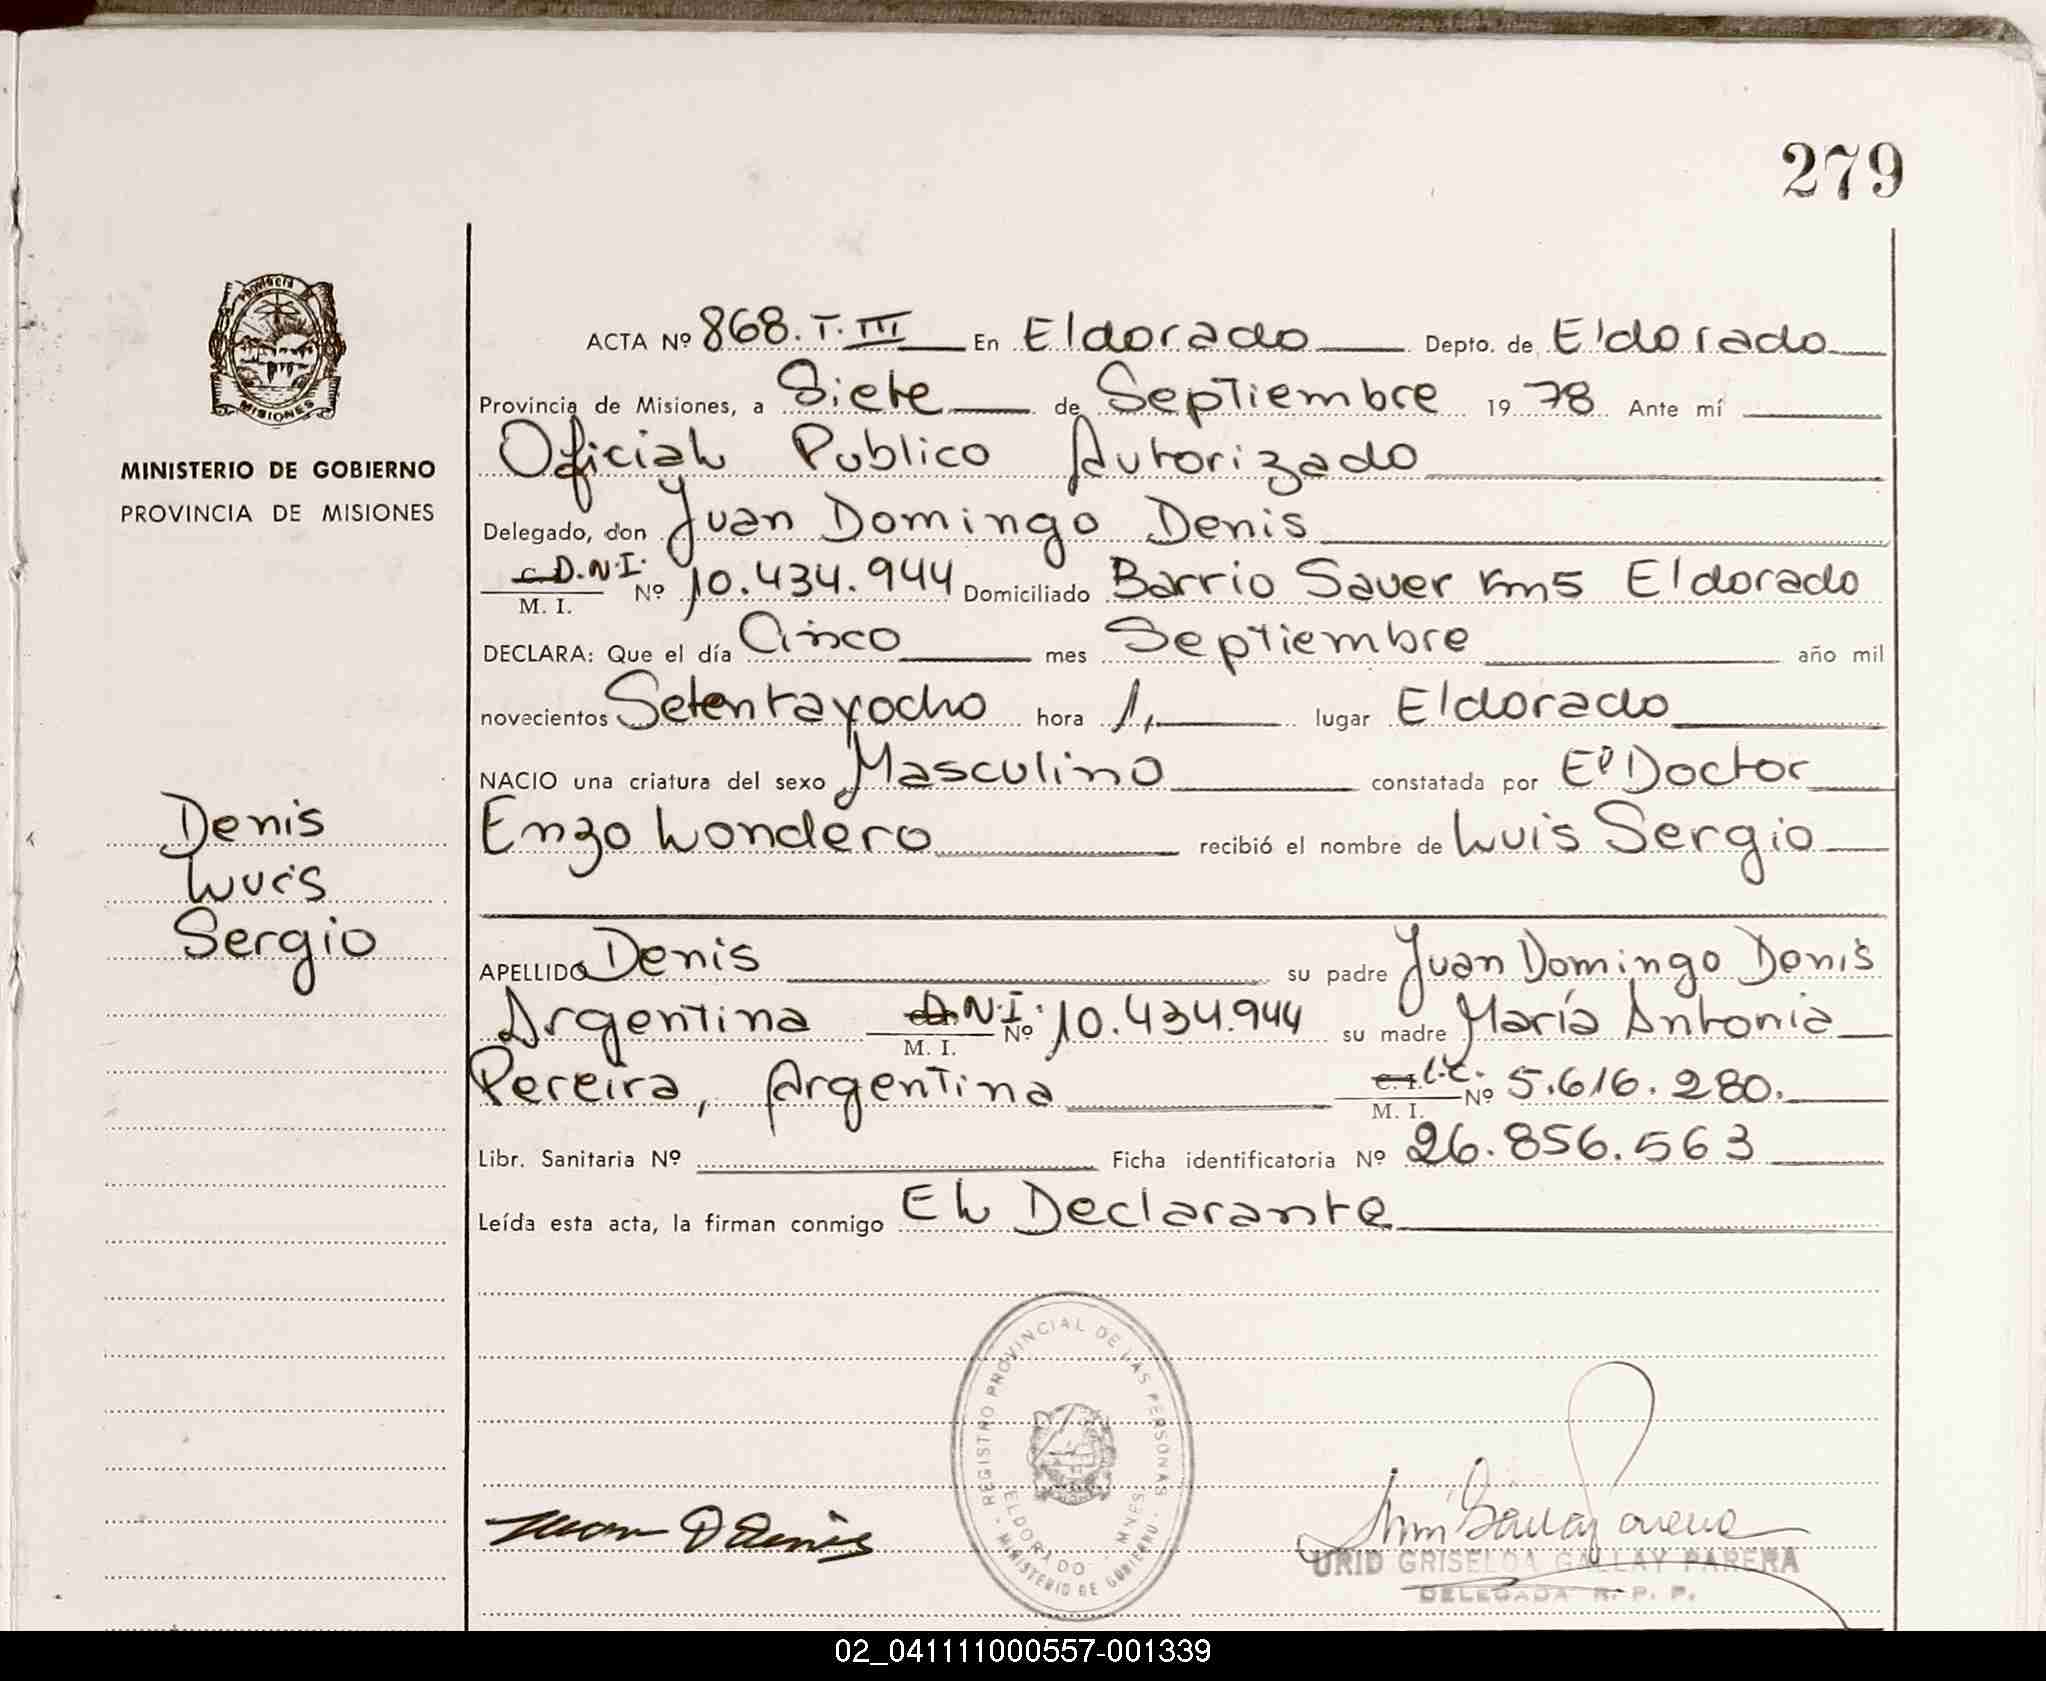 279
PROVINCIA
MISIONES
MINISTERIO DE GOBIERNO
PROVINCIA DE MISIONES
Denis
Luis
Sergio
ACTA Nº 868. T. III En Eldorado Depto. de Eldorado
Provincia de Misiones, a Siete de Septiembre 19 78 Ante mí
Oficial Publico Autorizado
Delegado, don Juan Domingo Denis
D.N.I. M. I. Nº 10.434.944 Domiciliado Barrio Sauer Km5 Eldorado
DECLARA: Que el día Cinco mes Septiembre año mil
novecientos Setentayocho hora 1, lugar Eldorado
NACIO una criatura del sexo Masculino constatada por El Doctor
Enzo Londero recibió el nombre de Luis Sergio
APELLIDO Denis su padre Juan Domingo Denis
Argentina D.N.I. M. I. Nº 10.434.944 su madre María Antonia
Pereira, Argentina C. I. L.C. M. I. Nº 5.616.280.
Libr. Sanitaria Nº Ficha identificatoria Nº 26.856.563
Leída esta acta, la firman conmigo El Declarante
REGISTRO PROVINCIAL DE LAS PERSONAS
ELDORADO - MNES.
MINISTERIO DE GOBIERNO
Juan D Denis
URID GRISELDA GALLAY PARERA
DELEGADA R. P. P.
02_041111000557-001339